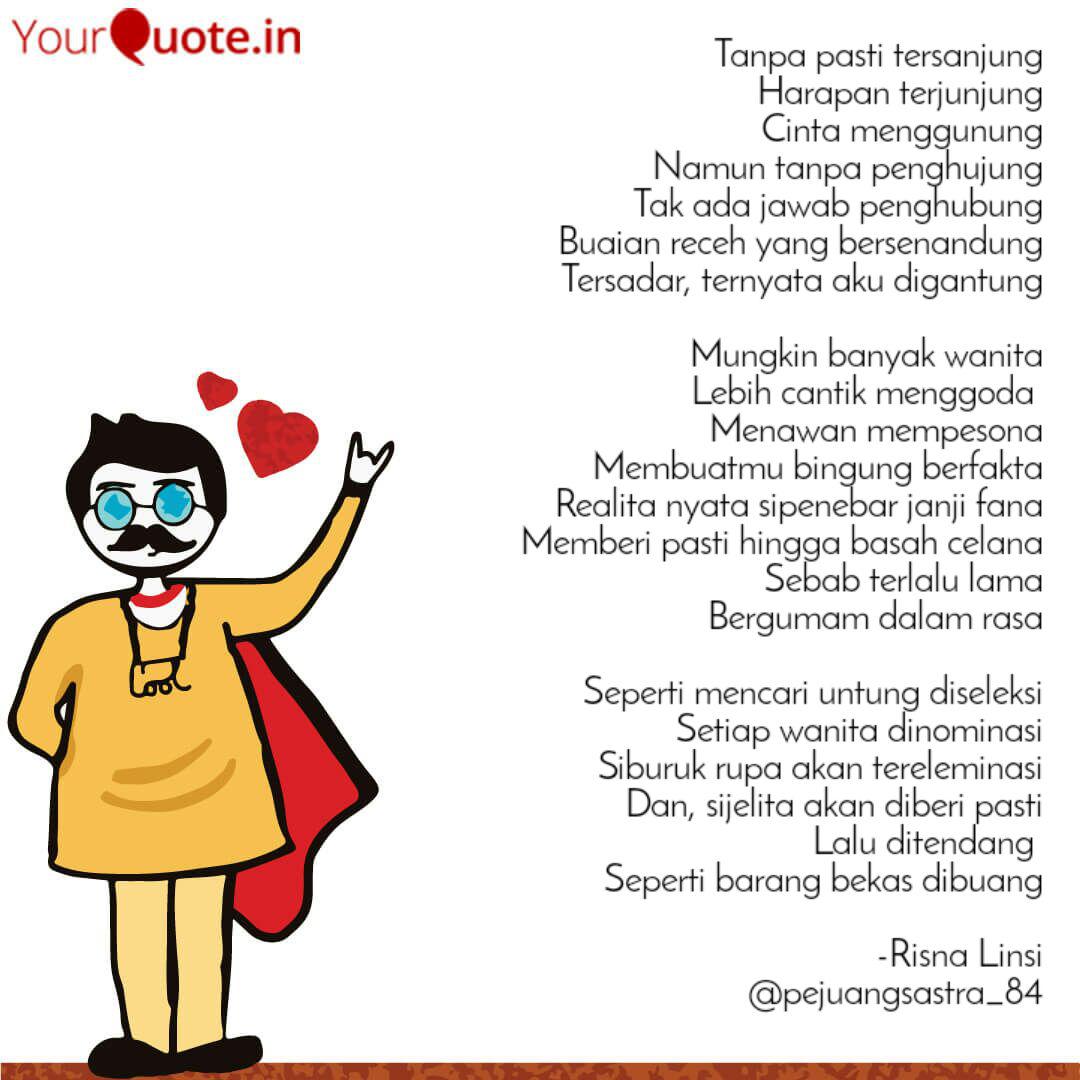 YourQuote.in
Tanpa pasti tersanjung
Harapan terjunjung
Cinta menggunung
Namun tanpa penghujung
Tak ada jawab penghubung
Buaian receh yang bersenandung
Tersadar, ternyata aku digantung
Mungkin banyak wanita
Lebih cantik menggoda
Menawan mempesona
Membuatmu bingung berfakta
Realita nyata sipenebar janji fana
Memberi pasti hingga basah celana
Sebab terlalu lama
Bergumam dalam rasa
Seperti mencari untung diseleksi
Setiap wanita dinominasi
Siburuk rupa akan tereleminasi
Dan, sijelita akan diberi pasti
Lalu ditendang
Seperti barang bekas dibuang
-Risna Linsi
@pejuangsastra_84